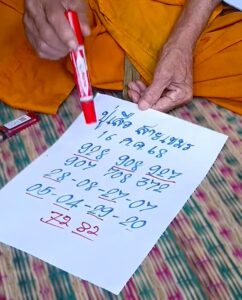 ปู่เสือ สายเขมร
16 กค 68
908 908 907
907 708 372
28-08-27-07
05-04-29-20
72 82